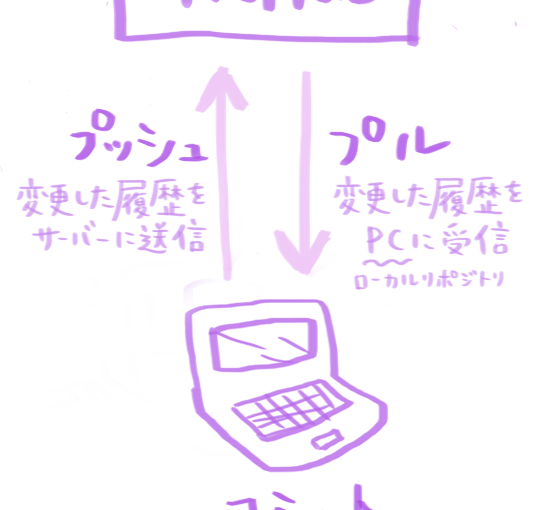 プッシュ
変更した履歴を
サーバーに送信
プル
変更した履歴を
PCに受信
ローカルリポジトリ
コミット